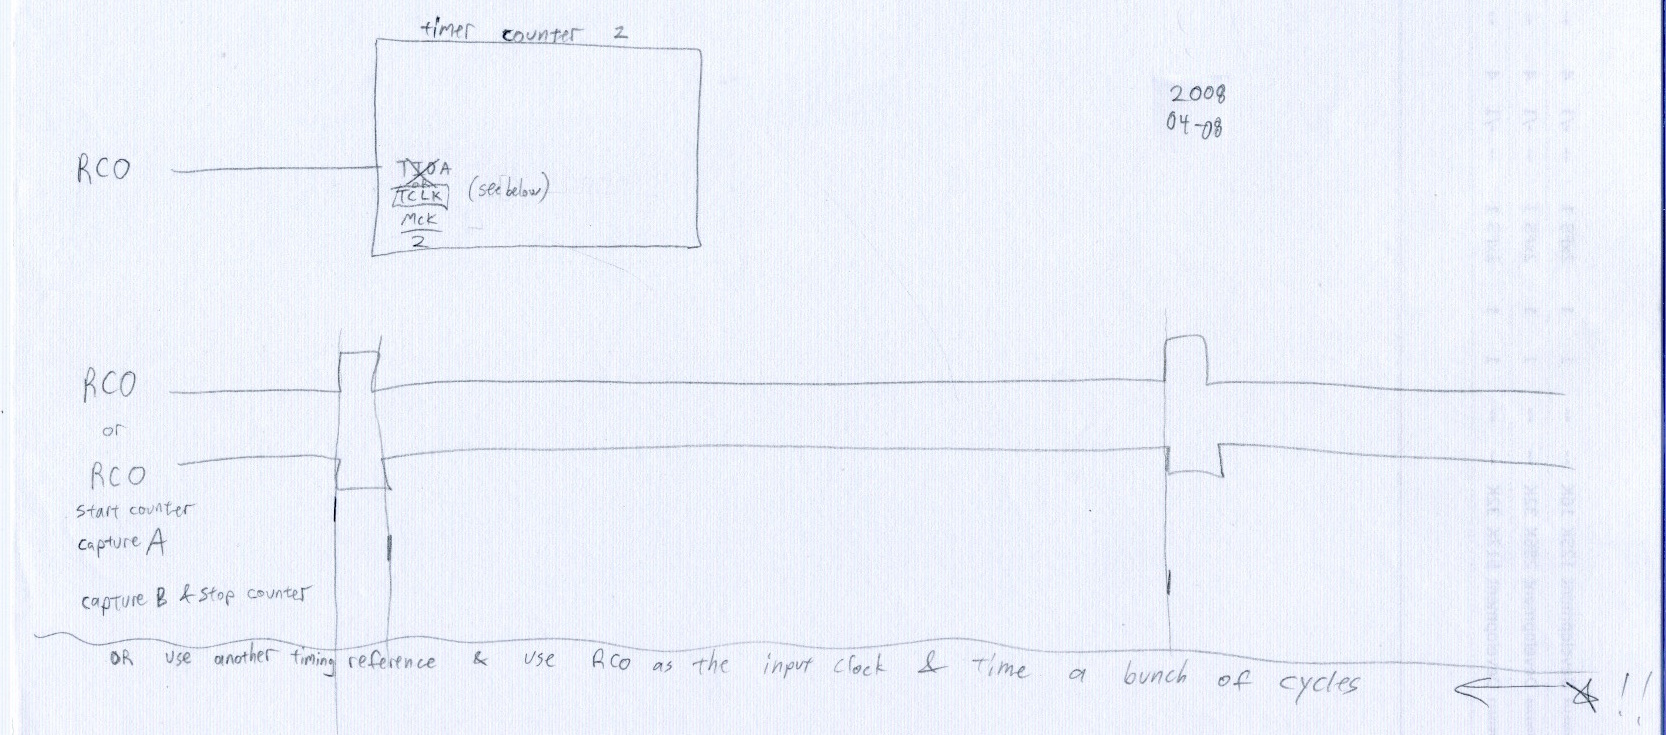 timer counter 2
2008
04-08
RCO
TIOA
or
TCLK (see below)
MCK
2
RCO
or
RCO
start counter
capture A
capture B & stop counter
OR use another timing reference & use RCO as the input clock & time a bunch of cycles ← !!